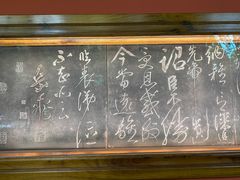 納雅言深
先帝遺
詔臣不勝
受恩感激
今當遠離
臨表涕泣
不知所云